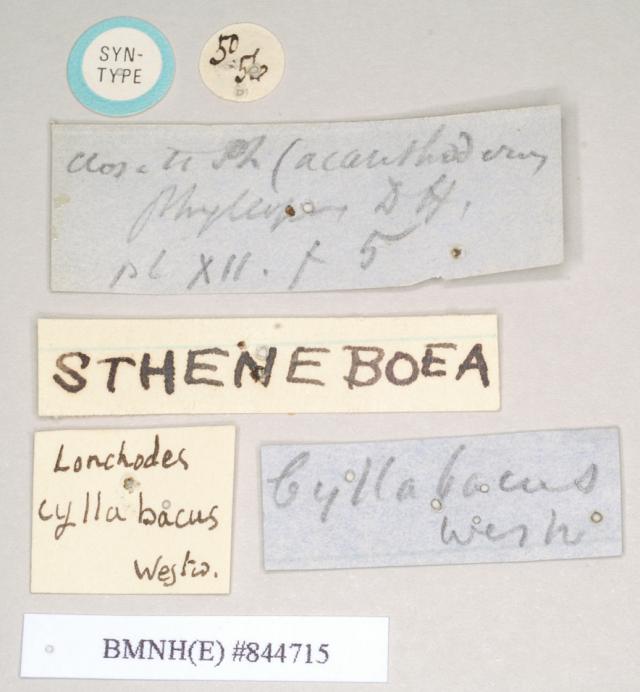 SYN-
TYPE
50
56
close to Ph (acanthoderus
phyllopus D H.
pl XII. f 5
STHENEBOEA
Lonchodes
cyllabacus
Westw.
Cyllabacus
Westw
BMNH(E) #844715